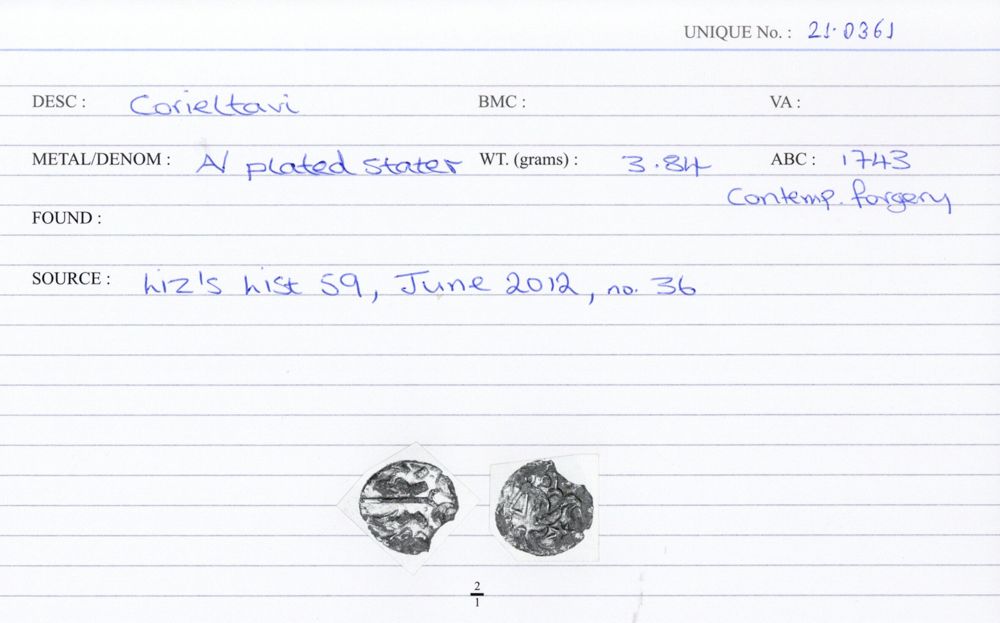 UNIQUE No. : 21·0361
DESC : Corieltavi BMC : VA :
METAL/DENOM : AV plated stater WT. (grams) : 3.84 ABC : 1743
Contemp. forgery
FOUND :
SOURCE : Liz's List 59, June 2012, no. 36
2
1